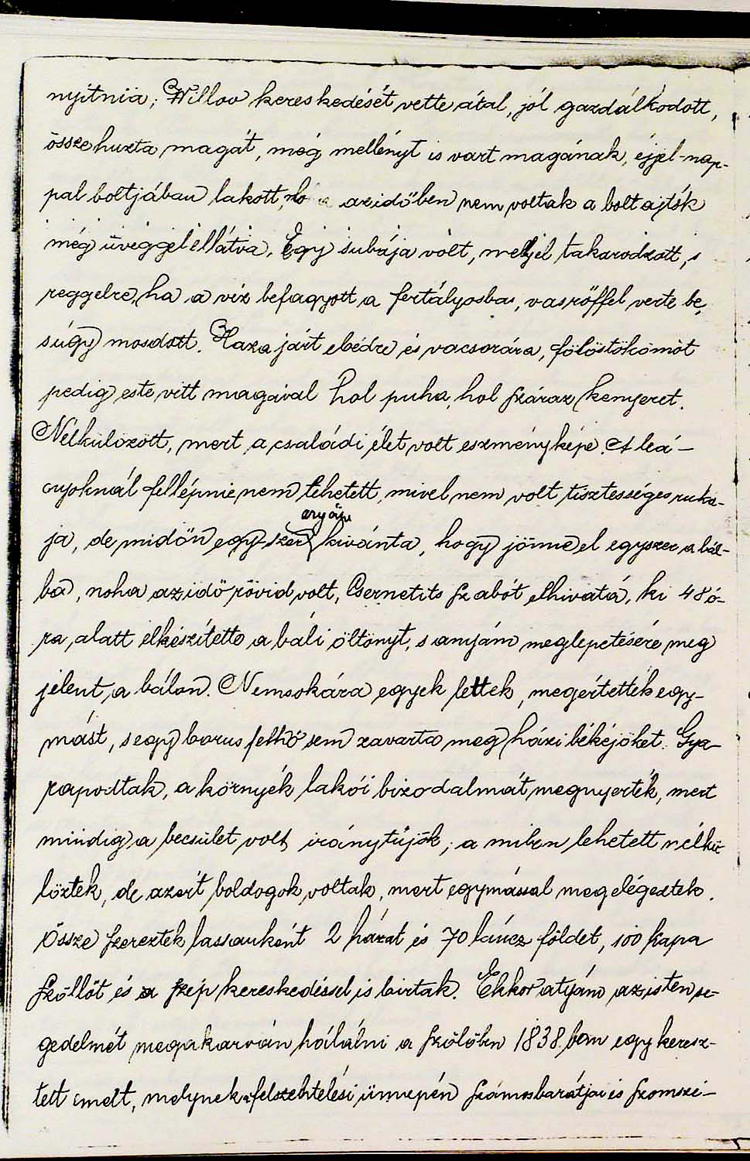 nyitnia; Willov kereskedését vette átal, jól gazdálkodott,
összehuzta magát, még mellényt is vart magának, éjjel-nap-
pal boltjában lakott, azidőben nem voltak a boltajtók
még üveggel ellátva. Egy subája volt, melyel takarodzott, s
reggelre, ha a víz befagyott a fertályosban, vasrőffel verte be,
s úgy mosdott. Haza járt ebédre és vacsorára, fölöstökömöt
pedig este vitt magával hol puha, hol száraz kenyeret.
Nélkülözött, mert a családi élet volt eszményképe. A leá-
nyoknál fellépnie nem lehetett, mivel nem volt tisztességes ruhá-
ja, de midőn egyszer anyám kivánta, hogy jönne el egyszer a bál-
ba, noha az idő rövid volt, Csernetits szabót elhivatá, ki 48 ó-
ra alatt elkészítette a báli öltönyt, s anyám meglepetésére meg
jelent a bálon. Nemsokára egyek lettek, megértették egy-
mást, s egy borus felhő sem zavarta meg házi békéjöket. Gya-
rapodtak, a környék lakói bizodalmát megnyerték, mert
mindig a becsület volt iránytűjök; a miben lehetett nélkü-
löztek, de azért boldogok voltak, mert egymással megelégedtek.
Össze szereztek lassanként 2 házat és 70 láncz földet, 100 kapa
szőllőt és a szép kereskedéssel is birtak. Ekkor atyám az isten se-
gedelmét megakarván hálálni a szőlőben 1838.ban egy keresz-
tett emelt, melynek felszentelési ünnepén számos barátjai és szomszé-